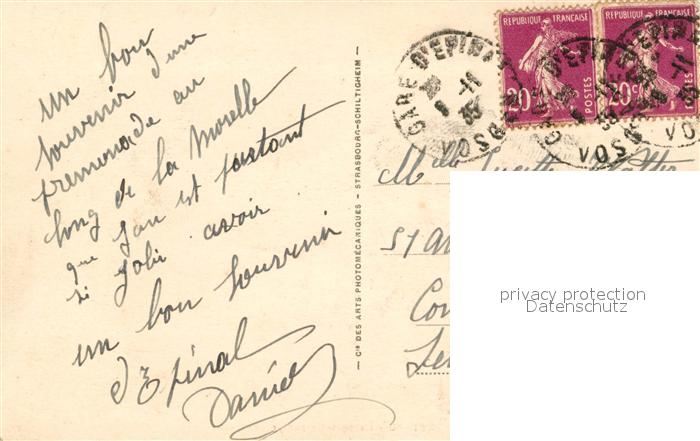 un bon
souvenir d'une
promenade au
long de la Moselle
que j'en est pourtant
si jolie avoir
un bon souvenir
d'Epinal
Daniel
— Cie DES ARTS PHOTOMÉCANIQUES - STRASBOURG-SCHILTIGHEIM —
REPUBLIQUE FRANÇAISE
20c
POSTES
REPUBLIQUE FRANÇAISE
20c
POSTES
GARE D'EPINAL
VOSGES
Melle
51
privacy protection
Datenschutz